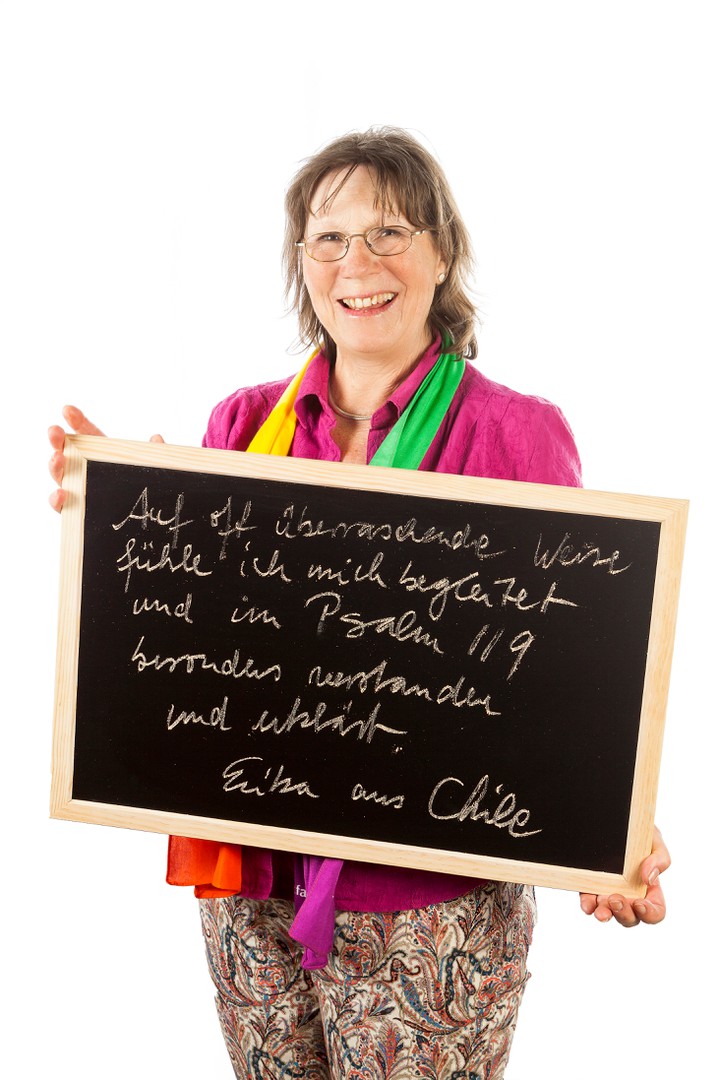 Auf oft überraschende Weise
fühle ich mich begleitet
und im Psalm 119
besonders verstanden
und erklärt.
Erika aus Chile
fa